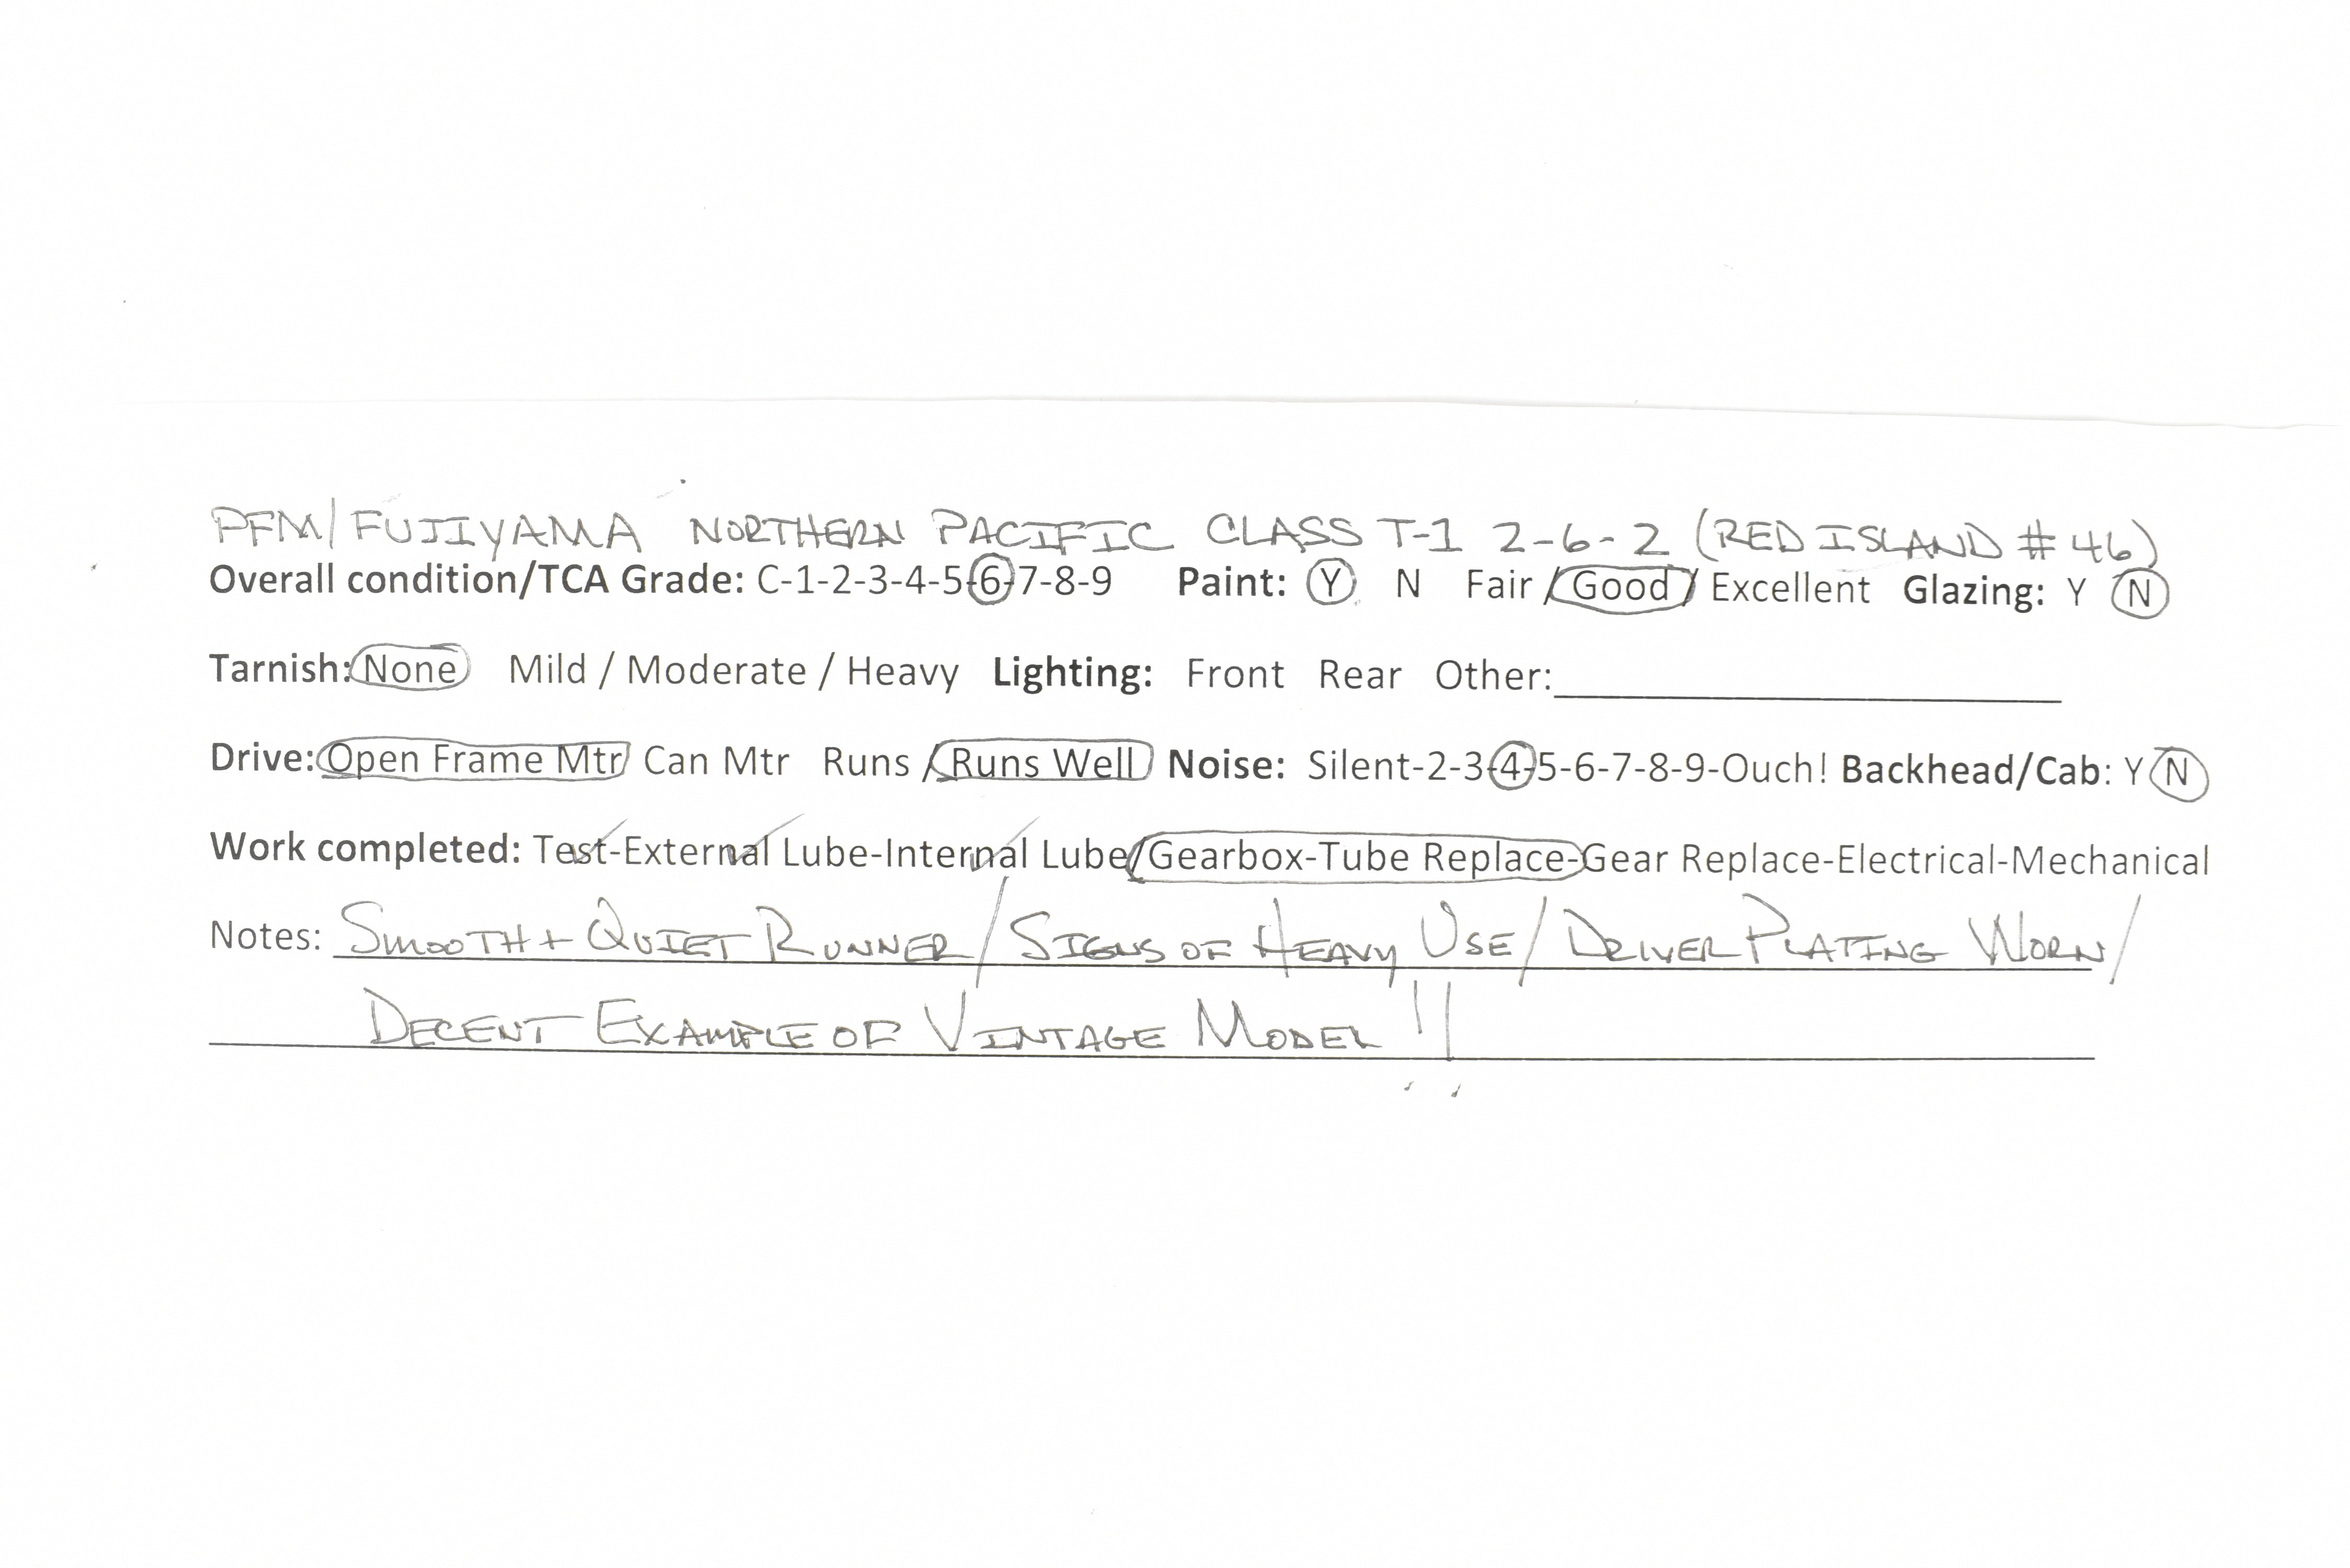 PFM/FUJIYAMA NORTHERN PACIFIC CLASS T-1 2-6-2 (RED ISLAND # 46)
Overall condition/TCA Grade: C-1-2-3-4-5-6-7-8-9 Paint: Y N Fair / Good / Excellent Glazing: Y N
Tarnish: None Mild / Moderate / Heavy Lighting: Front Rear Other:
Drive: Open Frame Mtr Can Mtr Runs / Runs Well Noise: Silent-2-3-4-5-6-7-8-9-Ouch! Backhead/Cab: Y N
Work completed: Test-External Lube-Internal Lube/Gearbox-Tube Replace-Gear Replace-Electrical-Mechanical
Notes: SMOOTH + QUIET RUNNER/SIGNS OF HEAVY USE/DRIVER PLATING WORN/
DECENT EXAMPLE OF VINTAGE MODEL!!